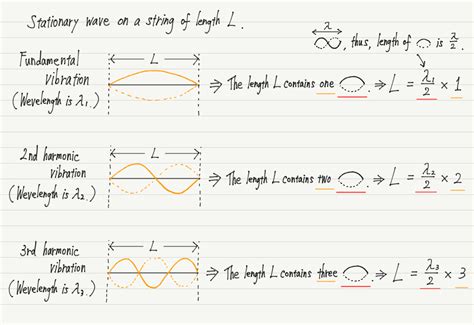 Stationary wave on a string of length L.
λ
, thus, length of is λ/2.
Fundamental
vibration
(Wevelength is λ₁.)
L
⇒ The length L contains one . ⇒ L = λ₁/2 × 1
2nd harmonic
vibration
(Wevelength is λ₂.)
L
⇒ The length L contains two . ⇒ L = λ₂/2 × 2
3rd harmonic
vibration
(Wevelength is λ₃.)
L
⇒ The length L contains three . ⇒ L = λ₃/2 × 3